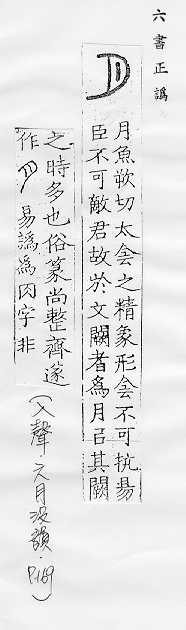 六書正譌
月魚欮切太侌之精象形侌不可抗昜
臣不可敵君故於文闕者爲月㠯其闕
之時多也俗篆尚整齊遂
作 易譌爲肉字非
(入聲·月沒韻·P.169)